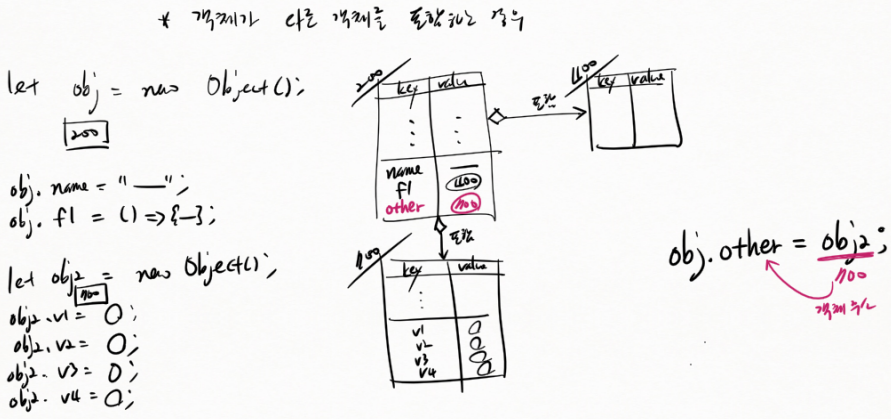 * 객체가 다른 객체를 포함하는 경우
let obj = new Object();
200
obj. name = "—";
obj. f1 = () => {—};
let obj2 = new Object();
700
obj2.v1 = O;
obj2. v2 = O;
obj2. v3 = O;
obj2. v4 = O;
200
key value
name —
f1
other 700
포함
key value
포함
700
key value
v1 O
v2 O
v3 O
v4 O
obj.other = obj2;
700
객체 주소